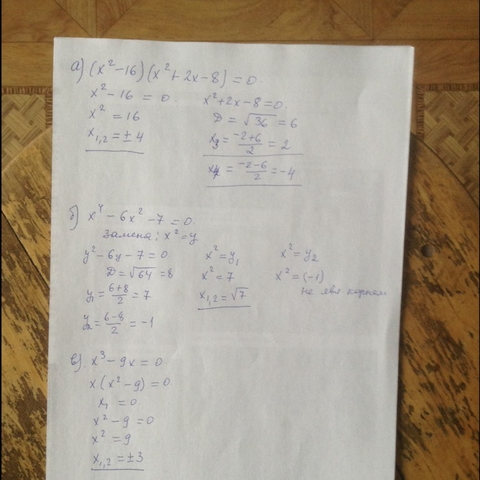 а) (x²-16)(x²+2x-8)=0.
x²-16=0.
x²=16
x₁,₂=±4
x²+2x-8=0.
D=√36=6
x₃=(-2+6)/2=2
x₄=(-2-6)/2=-4
б) x⁴-6x²-7=0.
замена: x²=y
y²-6y-7=0
D=√64=8
y₁=(6+8)/2=7
y₂=(6-8)/2=-1
x²=y₁
x²=7
x₁,₂=√7
x²=y₂
x²=(-1)
не явл корнем
в) x³-9x=0.
x(x²-9)=0
x₁=0
x²-9=0
x²=9
x₁,₂=±3